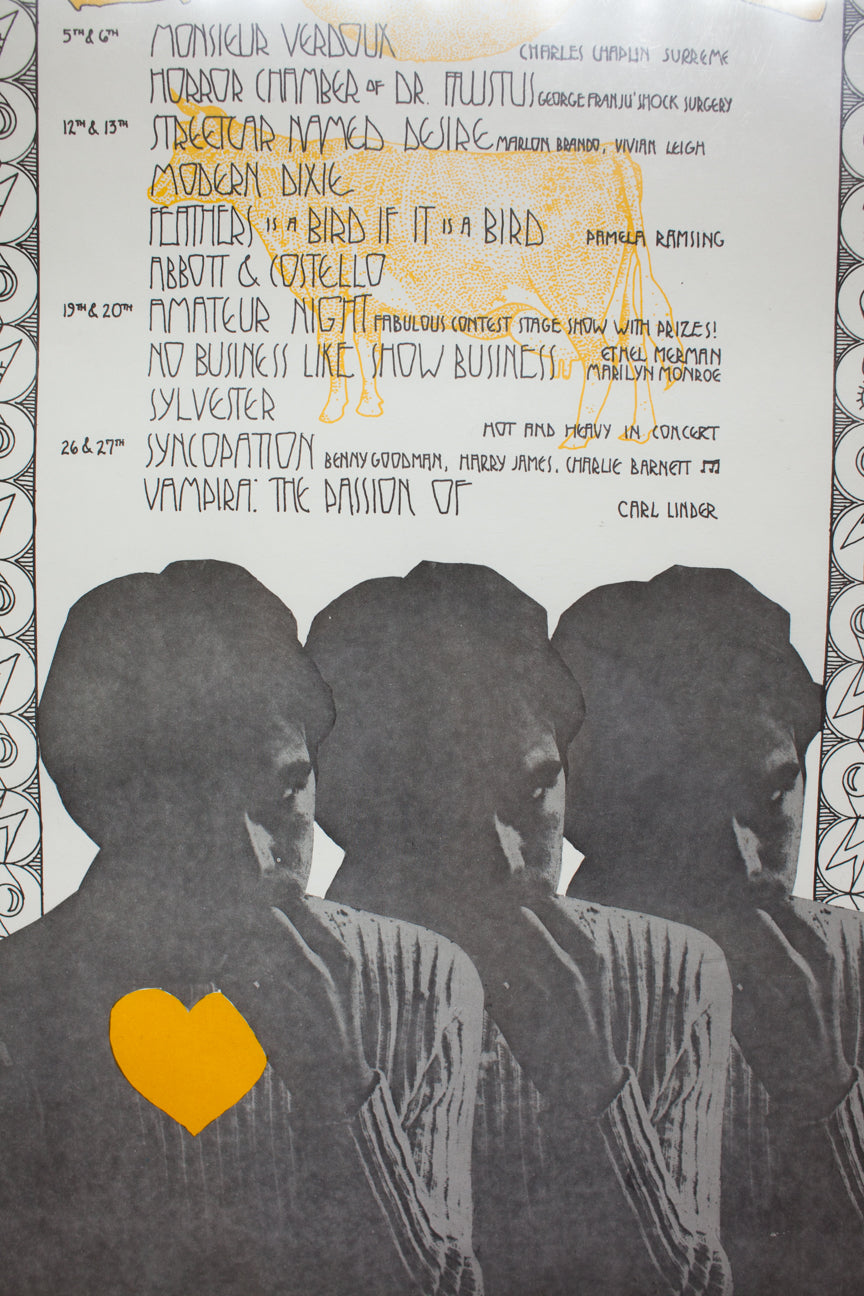 5TH & 6TH MONSIEUR VERDOUX CHARLES CHAPLIN SUPREME
HORROR CHAMBER OF DR. FAUSTUS GEORGE FRANJU' SHOCK SURGERY
12TH & 13TH STREETCAR NAMED DESIRE MARLON BRANDO, VIVIAN LEIGH
MODERN DIXIE
FEATHERS IS A BIRD IF IT IS A BIRD PAMELA RAMSING
ABBOTT & COSTELLO
19TH & 20TH AMATEUR NIGHT FABULOUS CONTEST STAGE SHOW WITH PRIZES!
NO BUSINESS LIKE SHOW BUSINESS ETHEL MERMAN
MARILYN MONROE
SYLVESTER
HOT AND HEAVY IN CONCERT
26 & 27TH SYNCOPATION BENNY GOODMAN, HARRY JAMES. CHARLIE BARNETT
VAMPIRA: THE PASSION OF CARL LINDER